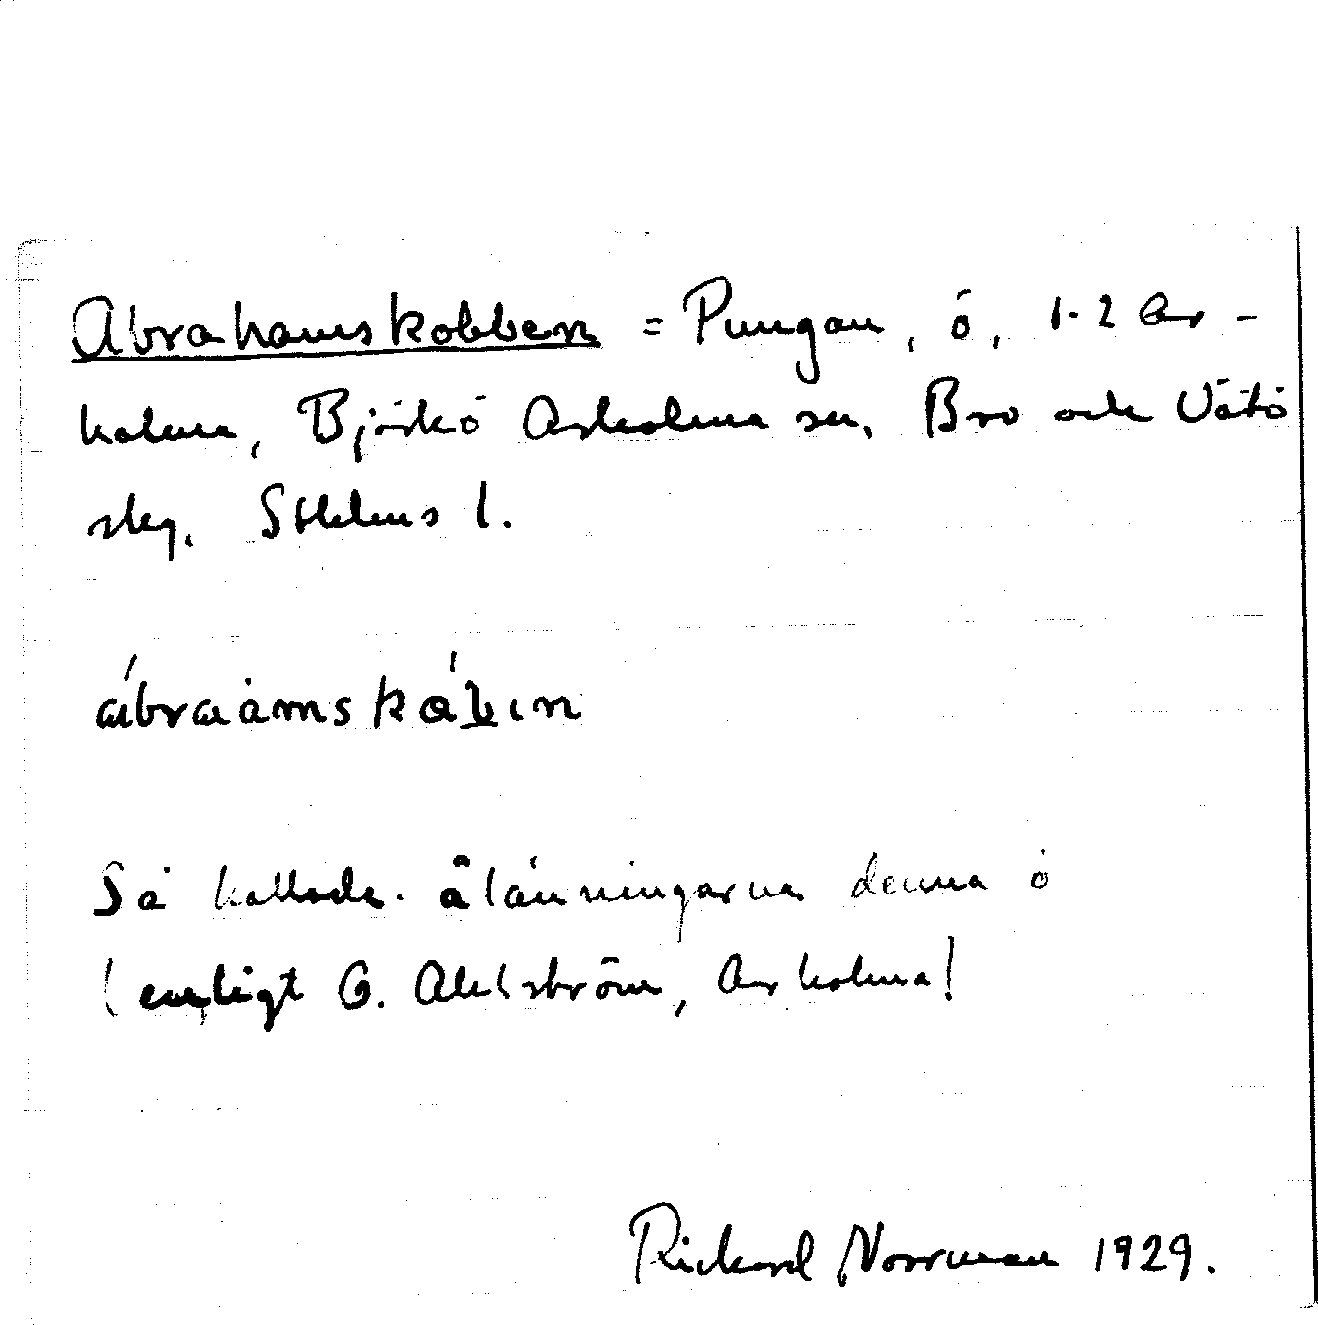 Abrahamskobben = Pungan, ö, 1-2 Ar-
holma, Björkö Arholma sn, Bro och Vätö
skg, Sthlms l.
ábraàmskáb̲ın
Så kallade ålänningarna denna ö
(enligt G. Ahlström, Arholma)
Rickard Norrman 1929.